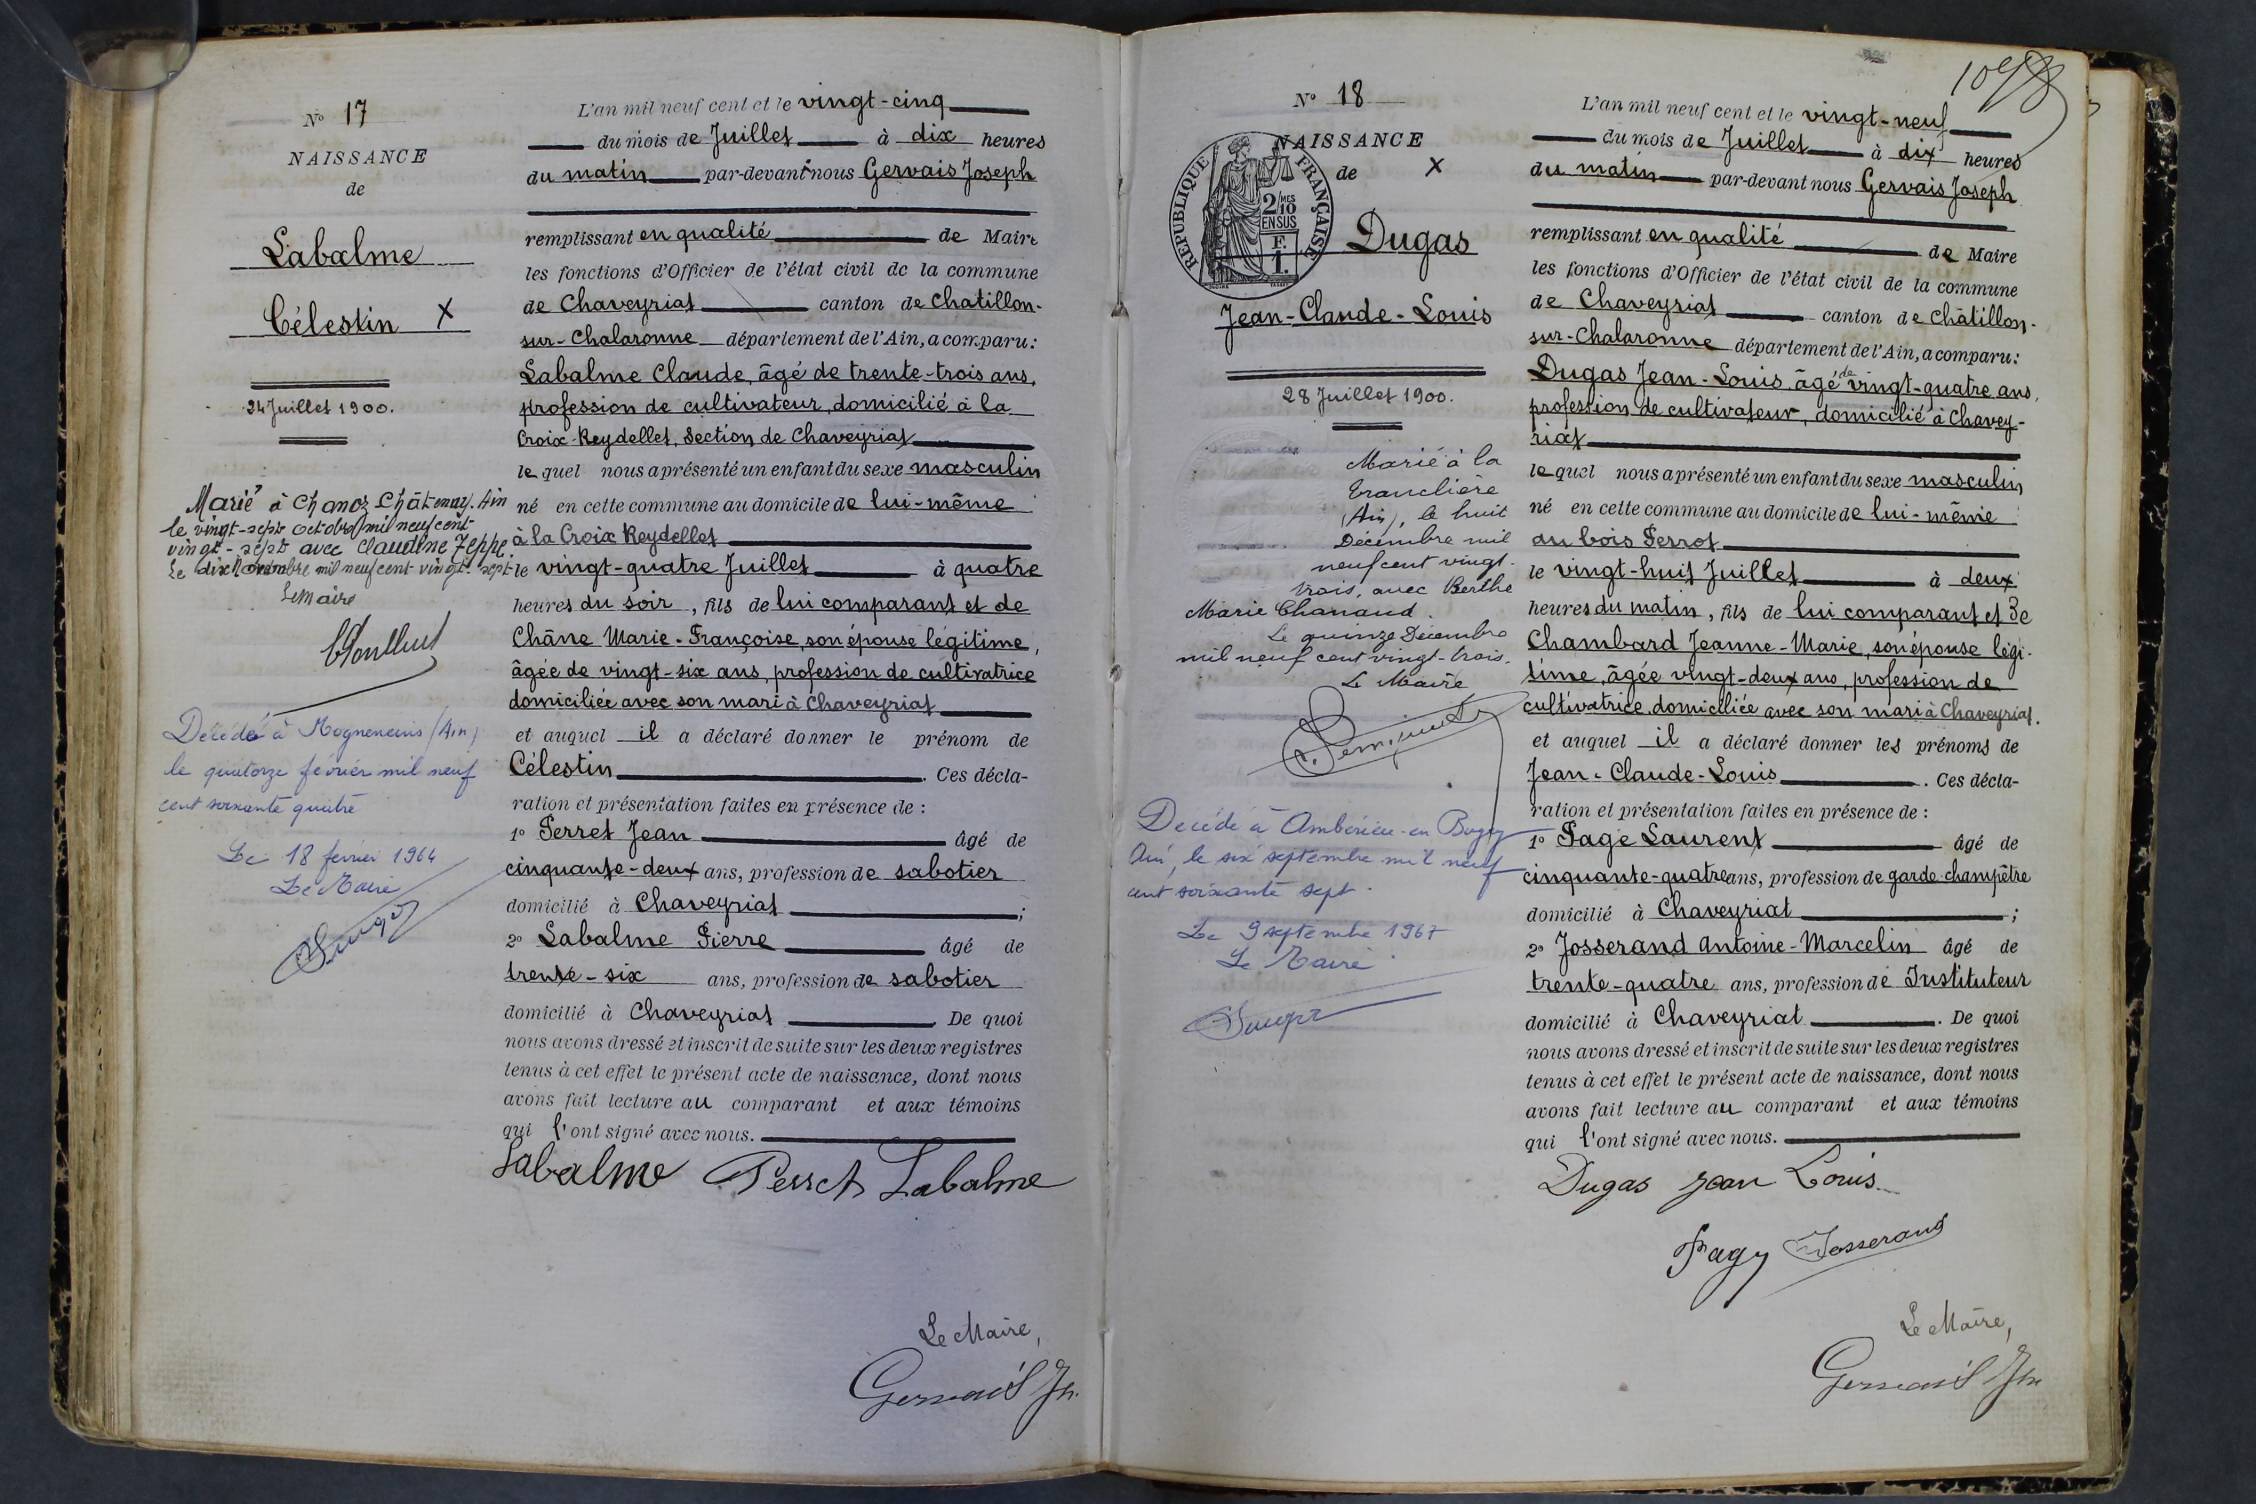 N° 17
NAISSANCE
de
Labalme
Célestin X
24 Juillet 1900.
Marié à Chanoz Châtenay. Ain
le vingt-sept octobre mil neuf cent
vingt-sept avec Claudine Feppe
Le dix Novembre mil neuf cent vingt-sept
Le maire
Décédé à Mogneneins (Ain)
le quatorze février mil neuf
cent soixante quatre
Le 18 février 1964
Le Maire
L'an mil neuf cent et le vingt-cinq
du mois de Juillet à dix heures
du matin par-devant nous Gervais Joseph
remplissant en qualité de Maire
les fonctions d'Officier de l'état civil de la commune
de Chaveyriat canton de Chatillon-
sur-Chalaronne département de l'Ain, a comparu:
Labalme Claude, âgé de trente-trois ans,
profession de cultivateur, domicilié à la
Croix-Reydellet, section de Chaveyriat
le quel nous a présenté un enfant du sexe masculin
né en cette commune au domicile de lui-même
à la Croix Reydellet
le vingt-quatre Juillet à quatre
heures du soir, fils de lui comparant et de
Châne Marie-Françoise, son épouse légitime,
âgée de vingt-six ans, profession de cultivatrice
domiciliée avec son mari à Chaveyriat
et auquel il a déclaré donner le prénom de
Célestin. Ces décla-
ration et présentation faites en présence de :
1° Perret Jean âgé de
cinquante-deux ans, profession de sabotier
domicilié à Chaveyriat ;
2° Labalme Pierre âgé de
trente-six ans, profession de sabotier
domicilié à Chaveyriat. De quoi
nous avons dressé et inscrit de suite sur les deux registres
tenus à cet effet le présent acte de naissance, dont nous
avons fait lecture au comparant et aux témoins
qui l'ont signé avec nous.
Labalme Perret Labalme
Le Maire,
Gervais Jh
N° 18
NAISSANCE
de X
RÉPUBLIQUE FRANÇAISE
2/10 MES
EN SUS
F.
1.
Dugas
Jean-Claude-Louis
28 Juillet 1900.
Marié à la
Tranclière
(Ain), le huit
Décembre mil
neuf cent vingt-
trois, avec Berthe
Marie Chanaud.
Le quinze Décembre
mil neuf cent vingt-trois.
Le Maire
Décédé à Ambérieu-en Bugey
Ain, le six septembre mil neuf
cent soixante sept.
Le 9 septembre 1967
Le Maire
L'an mil neuf cent et le vingt-neuf
du mois de Juillet à dix heures
du matin par-devant nous Gervais Joseph
remplissant en qualité de Maire
les fonctions d'Officier de l'état civil de la commune
de Chaveyriat canton de Châtillon-
sur-Chalaronne département de l'Ain, a comparu:
Dugas Jean-Louis, âgé de vingt-quatre ans,
profession de cultivateur, domicilié à Chavey-
riat
le quel nous a présenté un enfant du sexe masculin
né en cette commune au domicile de lui-même
au bois Perrot
le vingt-huit Juillet à deux
heures du matin, fils de lui comparant et de
Chambard Jeanne-Marie, son épouse légi-
time, âgée vingt-deux ans, profession de
cultivatrice, domiciliée avec son mari à Chaveyriat.
et auquel il a déclaré donner les prénoms de
Jean-Claude-Louis. Ces décla-
ration et présentation faites en présence de :
1° Page Laurent âgé de
cinquante-quatre ans, profession de garde-champêtre
domicilié à Chaveyriat ;
2° Josserand Antoine-Marcelin âgé de
trente-quatre ans, profession de Instituteur
domicilié à Chaveyriat. De quoi
nous avons dressé et inscrit de suite sur les deux registres
tenus à cet effet le présent acte de naissance, dont nous
avons fait lecture au comparant et aux témoins
qui l'ont signé avec nous.
Dugas Jean Louis
Page Josserand
Le Maire,
Gervais Jh